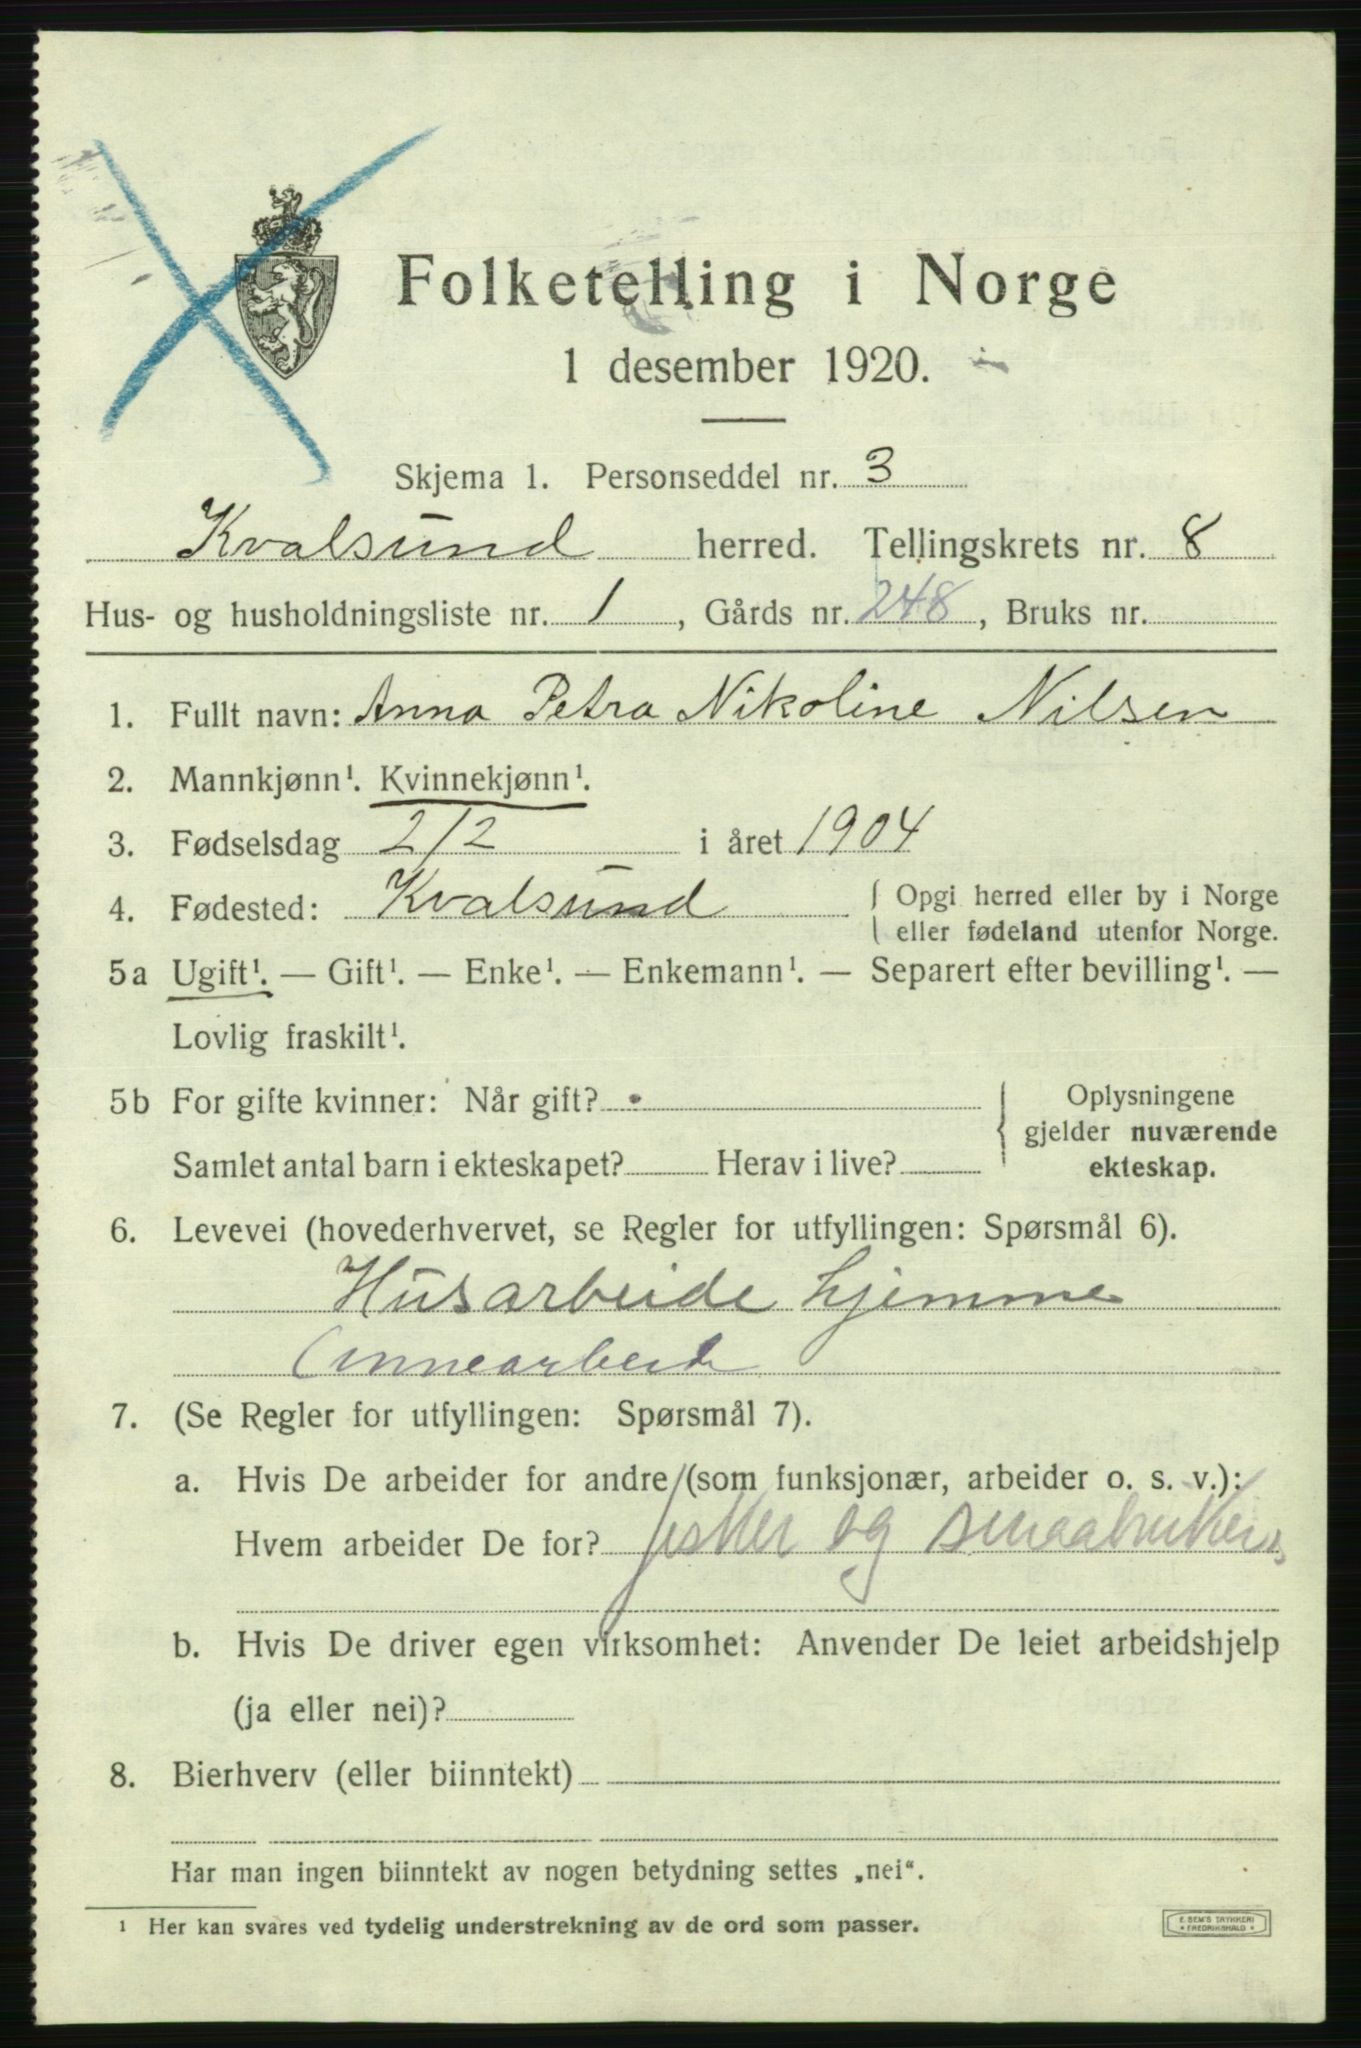 Folketelling i Norge
1 desember 1920.
Skjema 1. Personseddel nr. 3
Kvalsund herred. Tellingskrets nr. 8
Hus- og husholdningsliste nr. 1, Gårds nr. 248, Bruks nr.
1. Fullt navn: Anna Petra Nikoline Nilsen
2. Mannkjønn¹. Kvinnekjønn¹.
3. Fødselsdag 2/2 i året 1904
4. Fødested: Kvalsund { Opgi herred eller by i Norge
eller fødeland utenfor Norge.
5a Ugift¹. — Gift¹. — Enke¹. — Enkemann¹. — Separert efter bevilling¹. —
Lovlig fraskilt¹.
5b For gifte kvinner: Når gift? { Oplysningene
gjelder nuværende
Samlet antal barn i ekteskapet? Herav i live? ekteskap.
6. Levevei (hovederhvervet, se Regler for utfyllingen: Spørsmål 6).
Husarbeide hjemme
7. (Se Regler for utfyllingen: Spørsmål 7).
a. Hvis De arbeider for andre (som funksjonær, arbeider o. s. v.):
Hvem arbeider De for? og
b. Hvis De driver egen virksomhet: Anvender De leiet arbeidshjelp
(ja eller nei)?
8. Bierhverv (eller biinntekt) —
Har man ingen biinntekt av nogen betydning settes „nei“.
¹ Her kan svares ved tydelig understrekning av de ord som passer.
E. SEM'S TRYKKERI
* FREDRIKSHALD *